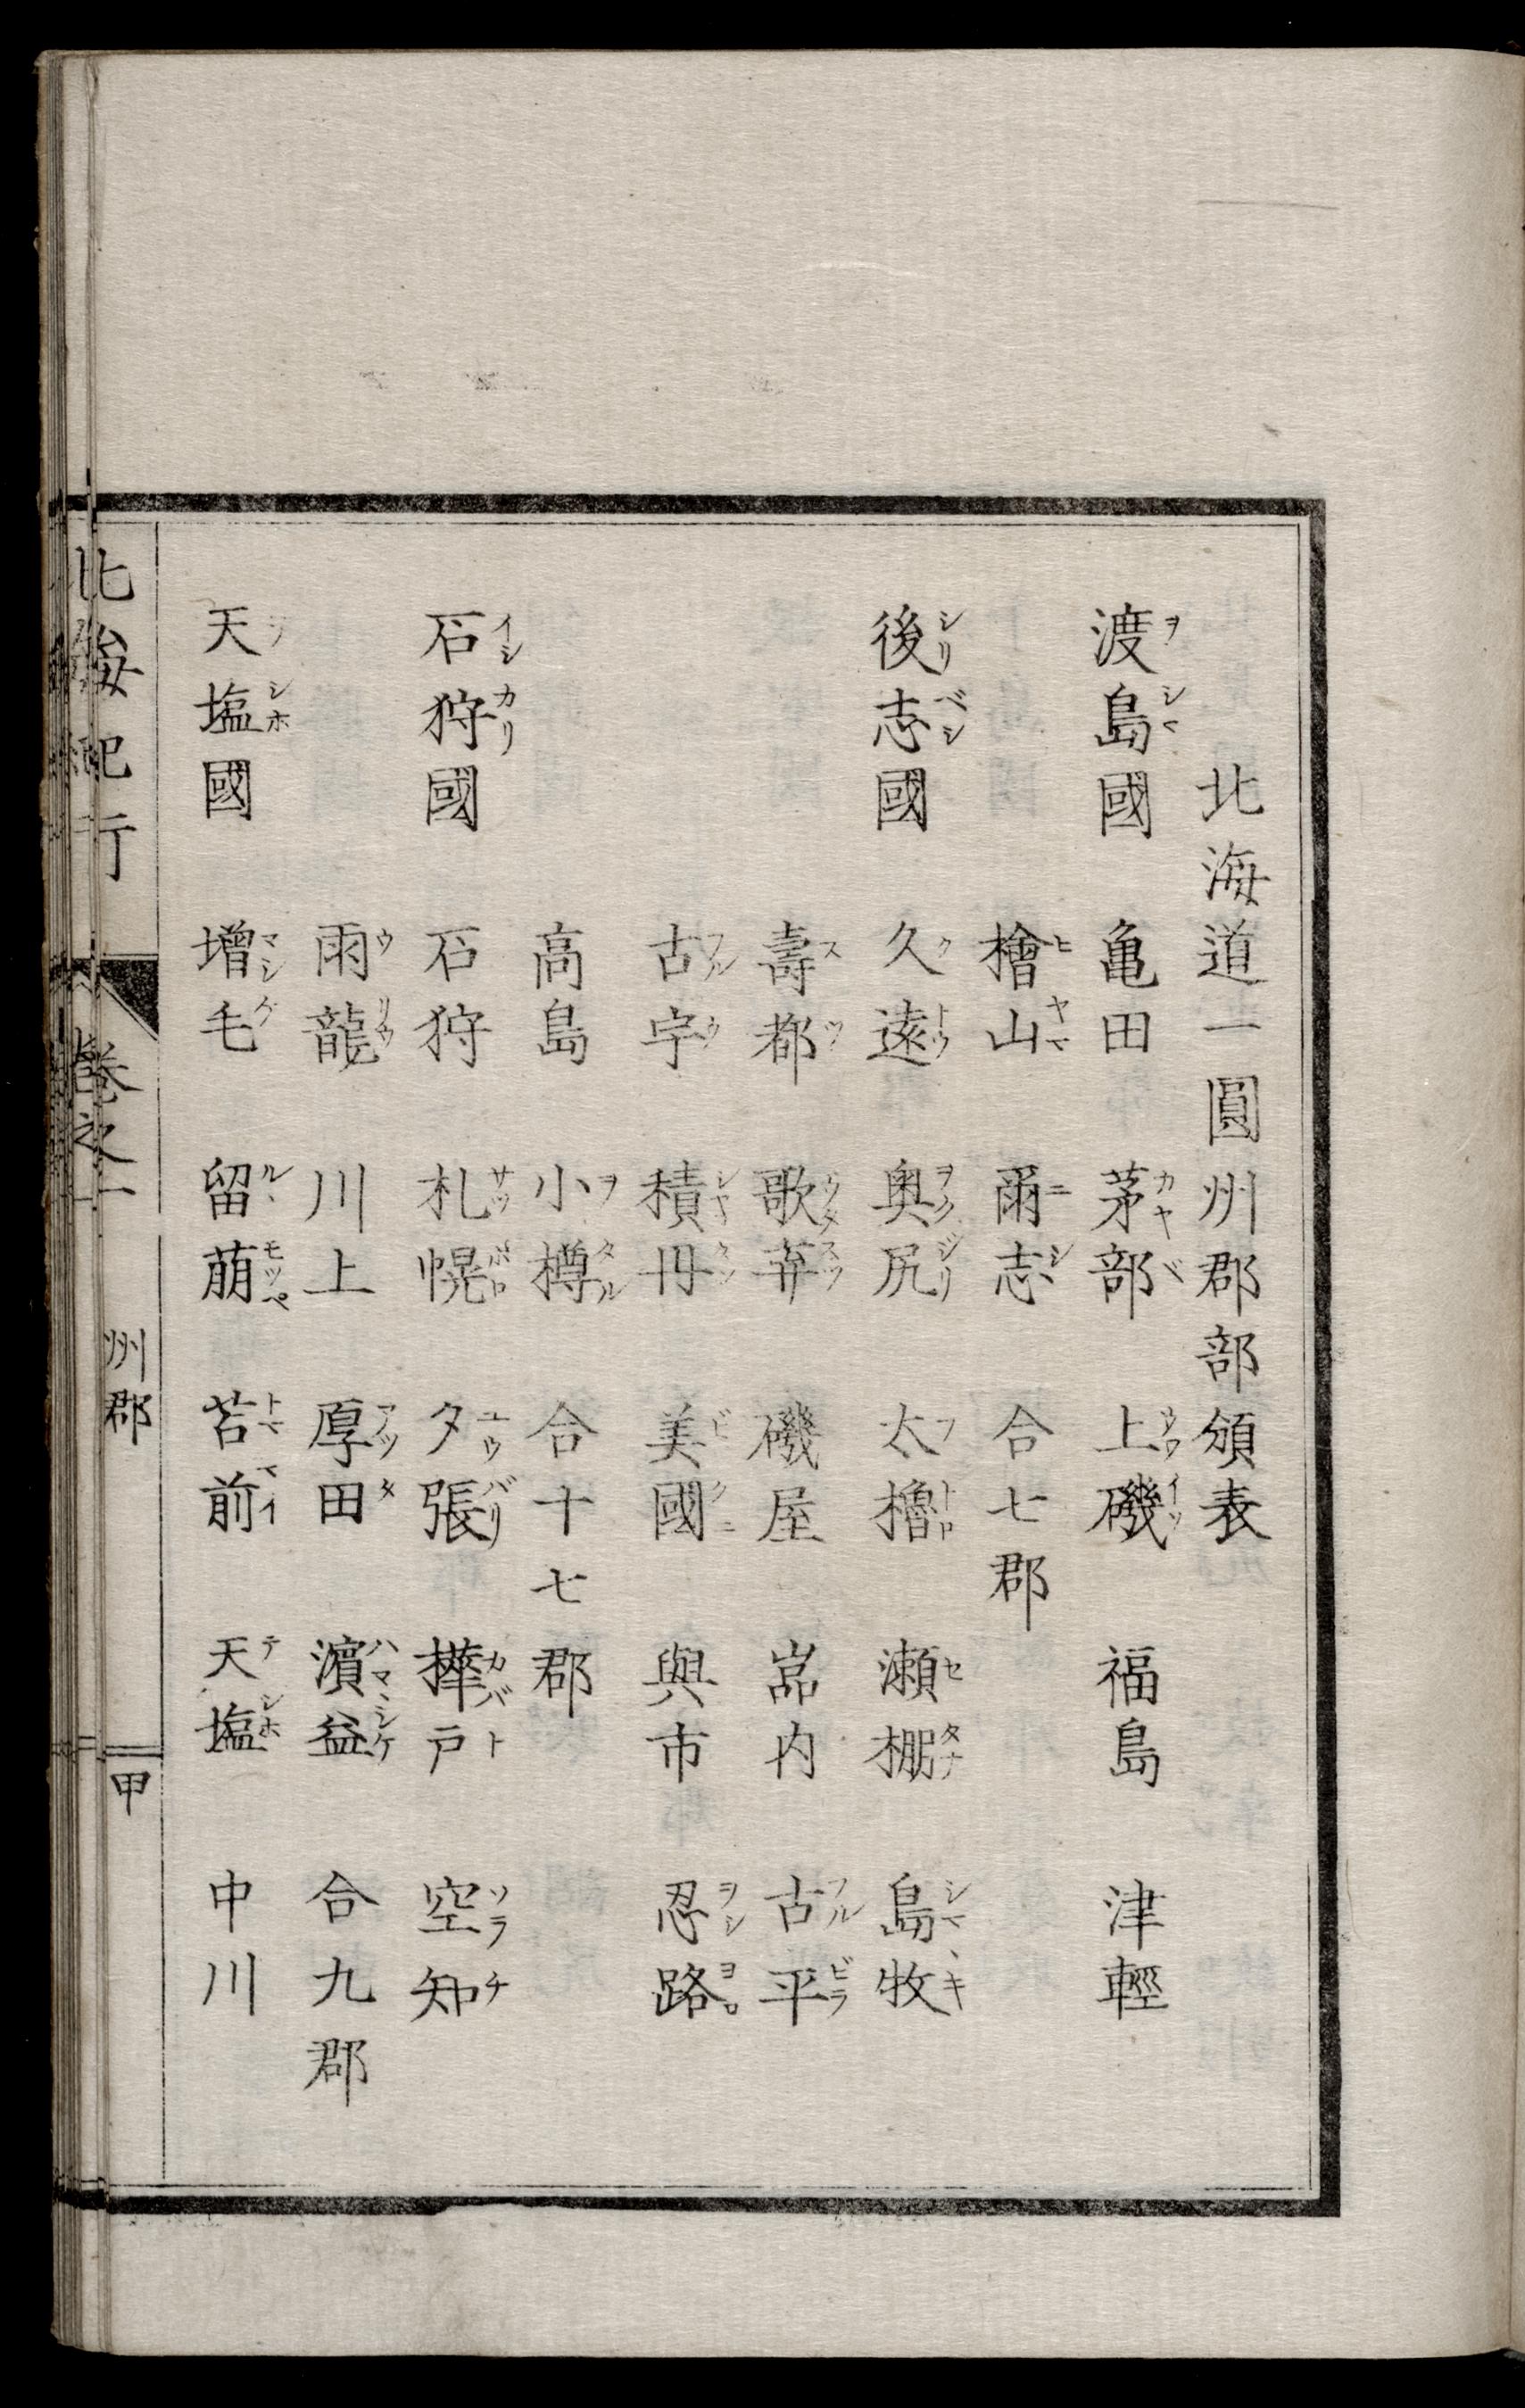 北海道一圓州郡部頒表
渡島國 亀田 茅部 上磯 福島 津輕
檜山 爾志 合七郡
後志國 久遠 奥尻 太櫓 瀬棚 島牧
壽都 歌弃 磯屋 岩内 古平
古宇 積丹 美國 與市 忍路
高島 小樽 合十七郡
石狩國 石狩 札幌 夕張 樺戸 空知
雨龍 川上 厚田 濱益 合九郡
天塩國 增毛 留萠 苫前 天塩 中川
北海紀行 卷之一 州郡 甲